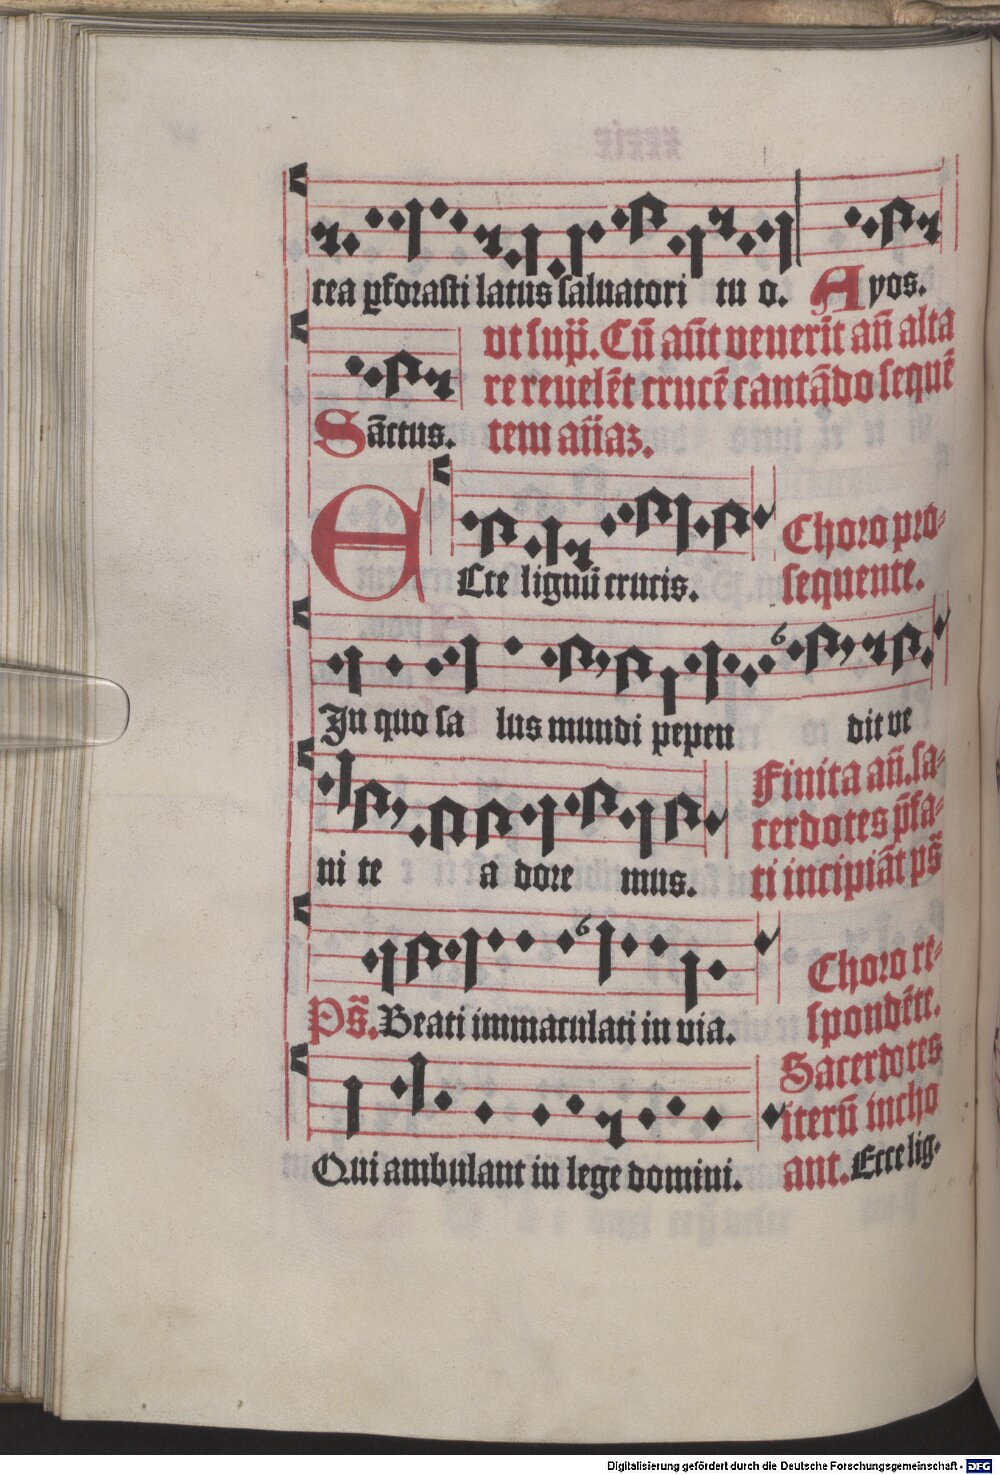 cea ꝑforasti latus saluatori tu o. Ayos.
vt sup̄. Cū aūt venerīt añ alta
re reuelēt crucē cantādo sequē
Sāctus. tem añaꝫ.
ECce lignū crucis. Choro pro-
sequente.
In quo sa lus mundi pepen dit ve
ni te a dore mus.
Finita añ. sa-
cerdotes p̄fa-
ti incipiāt ps̄
Ps̄. Beati immaculati in via.
Choro re-
spondēte.
Sacerdotes
iterū incho
Qui ambulant in lege domini. ant. Ecce lig.
Digitalisierung gefördert durch die Deutsche Forschungsgemeinschaft - DFG